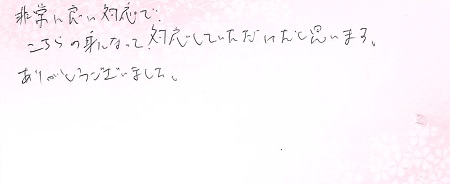 非常に良い対応で、
こちらの身になって対応していただいたと思います。
ありがとうございました。